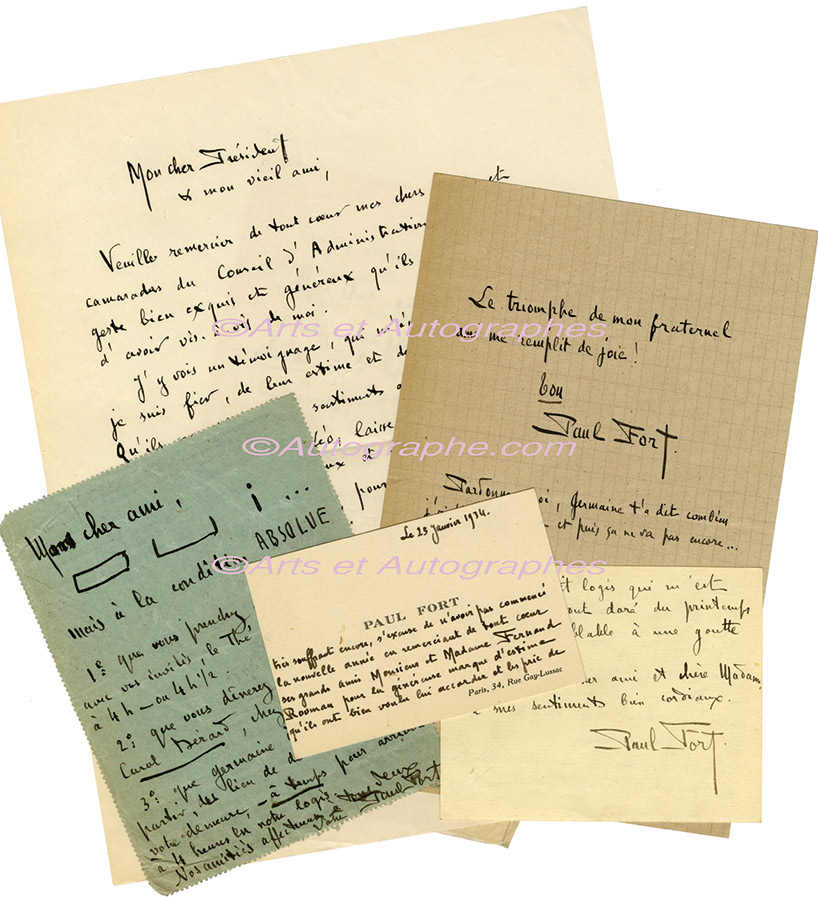 Mon cher Président
& mon vieil ami,
Veuillez remercier de tout cœur mes chers et
camarades du Conseil d'Administration
geste bien exquis et généreux qu'ils
d'avoir vis à vis de moi.
J'y vois un témoignage, qui
je suis fier, de leur estime et de
Qu'ils sentiments
laisse
et
pour
Le triomphe de mon fraternel
me remplit de joie !
ton
Paul Fort
Pardonne-moi, Germaine t'a dit combien
et puis ça ne va pas encore...
Mon cher ami,
OUI...
ABSOLUE
mais à la condition
1º que vous preniez
avec vos invités, le Thé
à 4h – ou 4h½.
2º que vous dînerez
Carol Bérard, chez
3º que Germaine
partir, au lieu de d
votre demeure, – à temps pour arriver
à 4 heures en notre logis
Nos amitiés affectueuses
votre Paul Fort
Le 25 Janvier 1934.
PAUL FORT
très souffrant encore, s'excuse de n'avoir pas commencé
la nouvelle année en remerciant de tout cœur
ses grands amis Monsieur et Madame Fernand
Rooman pour la généreuse marque d'estime
qu'ils ont bien voulu lui accorder et les prie de
Paris, 34, Rue Gay-Lussac
logis qui m'est
tout doré du printemps
à une goutte
ami et chère Madame
mes sentiments bien cordiaux.
Paul Fort.
©Arts et Autographes
©Autographe.com
©Arts et Autographes